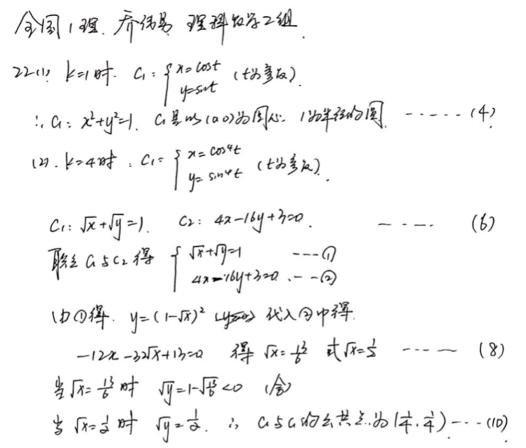 全国1理. 乔伟易 理科数学2组.
22.(1). k=1时. C₁: { x=cost y=sint (t为参数).
∴ C₁: x²+y²=1. C₁是以(0,0)为圆心. 1为半径的圆. ------(4)
(2). k=4时. C₁= { x=cos⁴t y=sin⁴t (t为参数).
C₁: √x+√y=1. C₂: 4x-16y+3=0. ---- (6)
联立C₁与C₂得 { √x+√y=1 ---① 4x-16y+3=0 ---②
由①得. y=(1-√x)² 代入②中得.
-12x-32√x+13=0 得 √x=13/6 或√x=1/2 ----- (8)
当√x=13/6时 √y=1-√13/6<0 (舍)
当√x=1/2时 √y=1/2. ∴ C₁与C₂的公共点为(1/4,1/4)---(10)